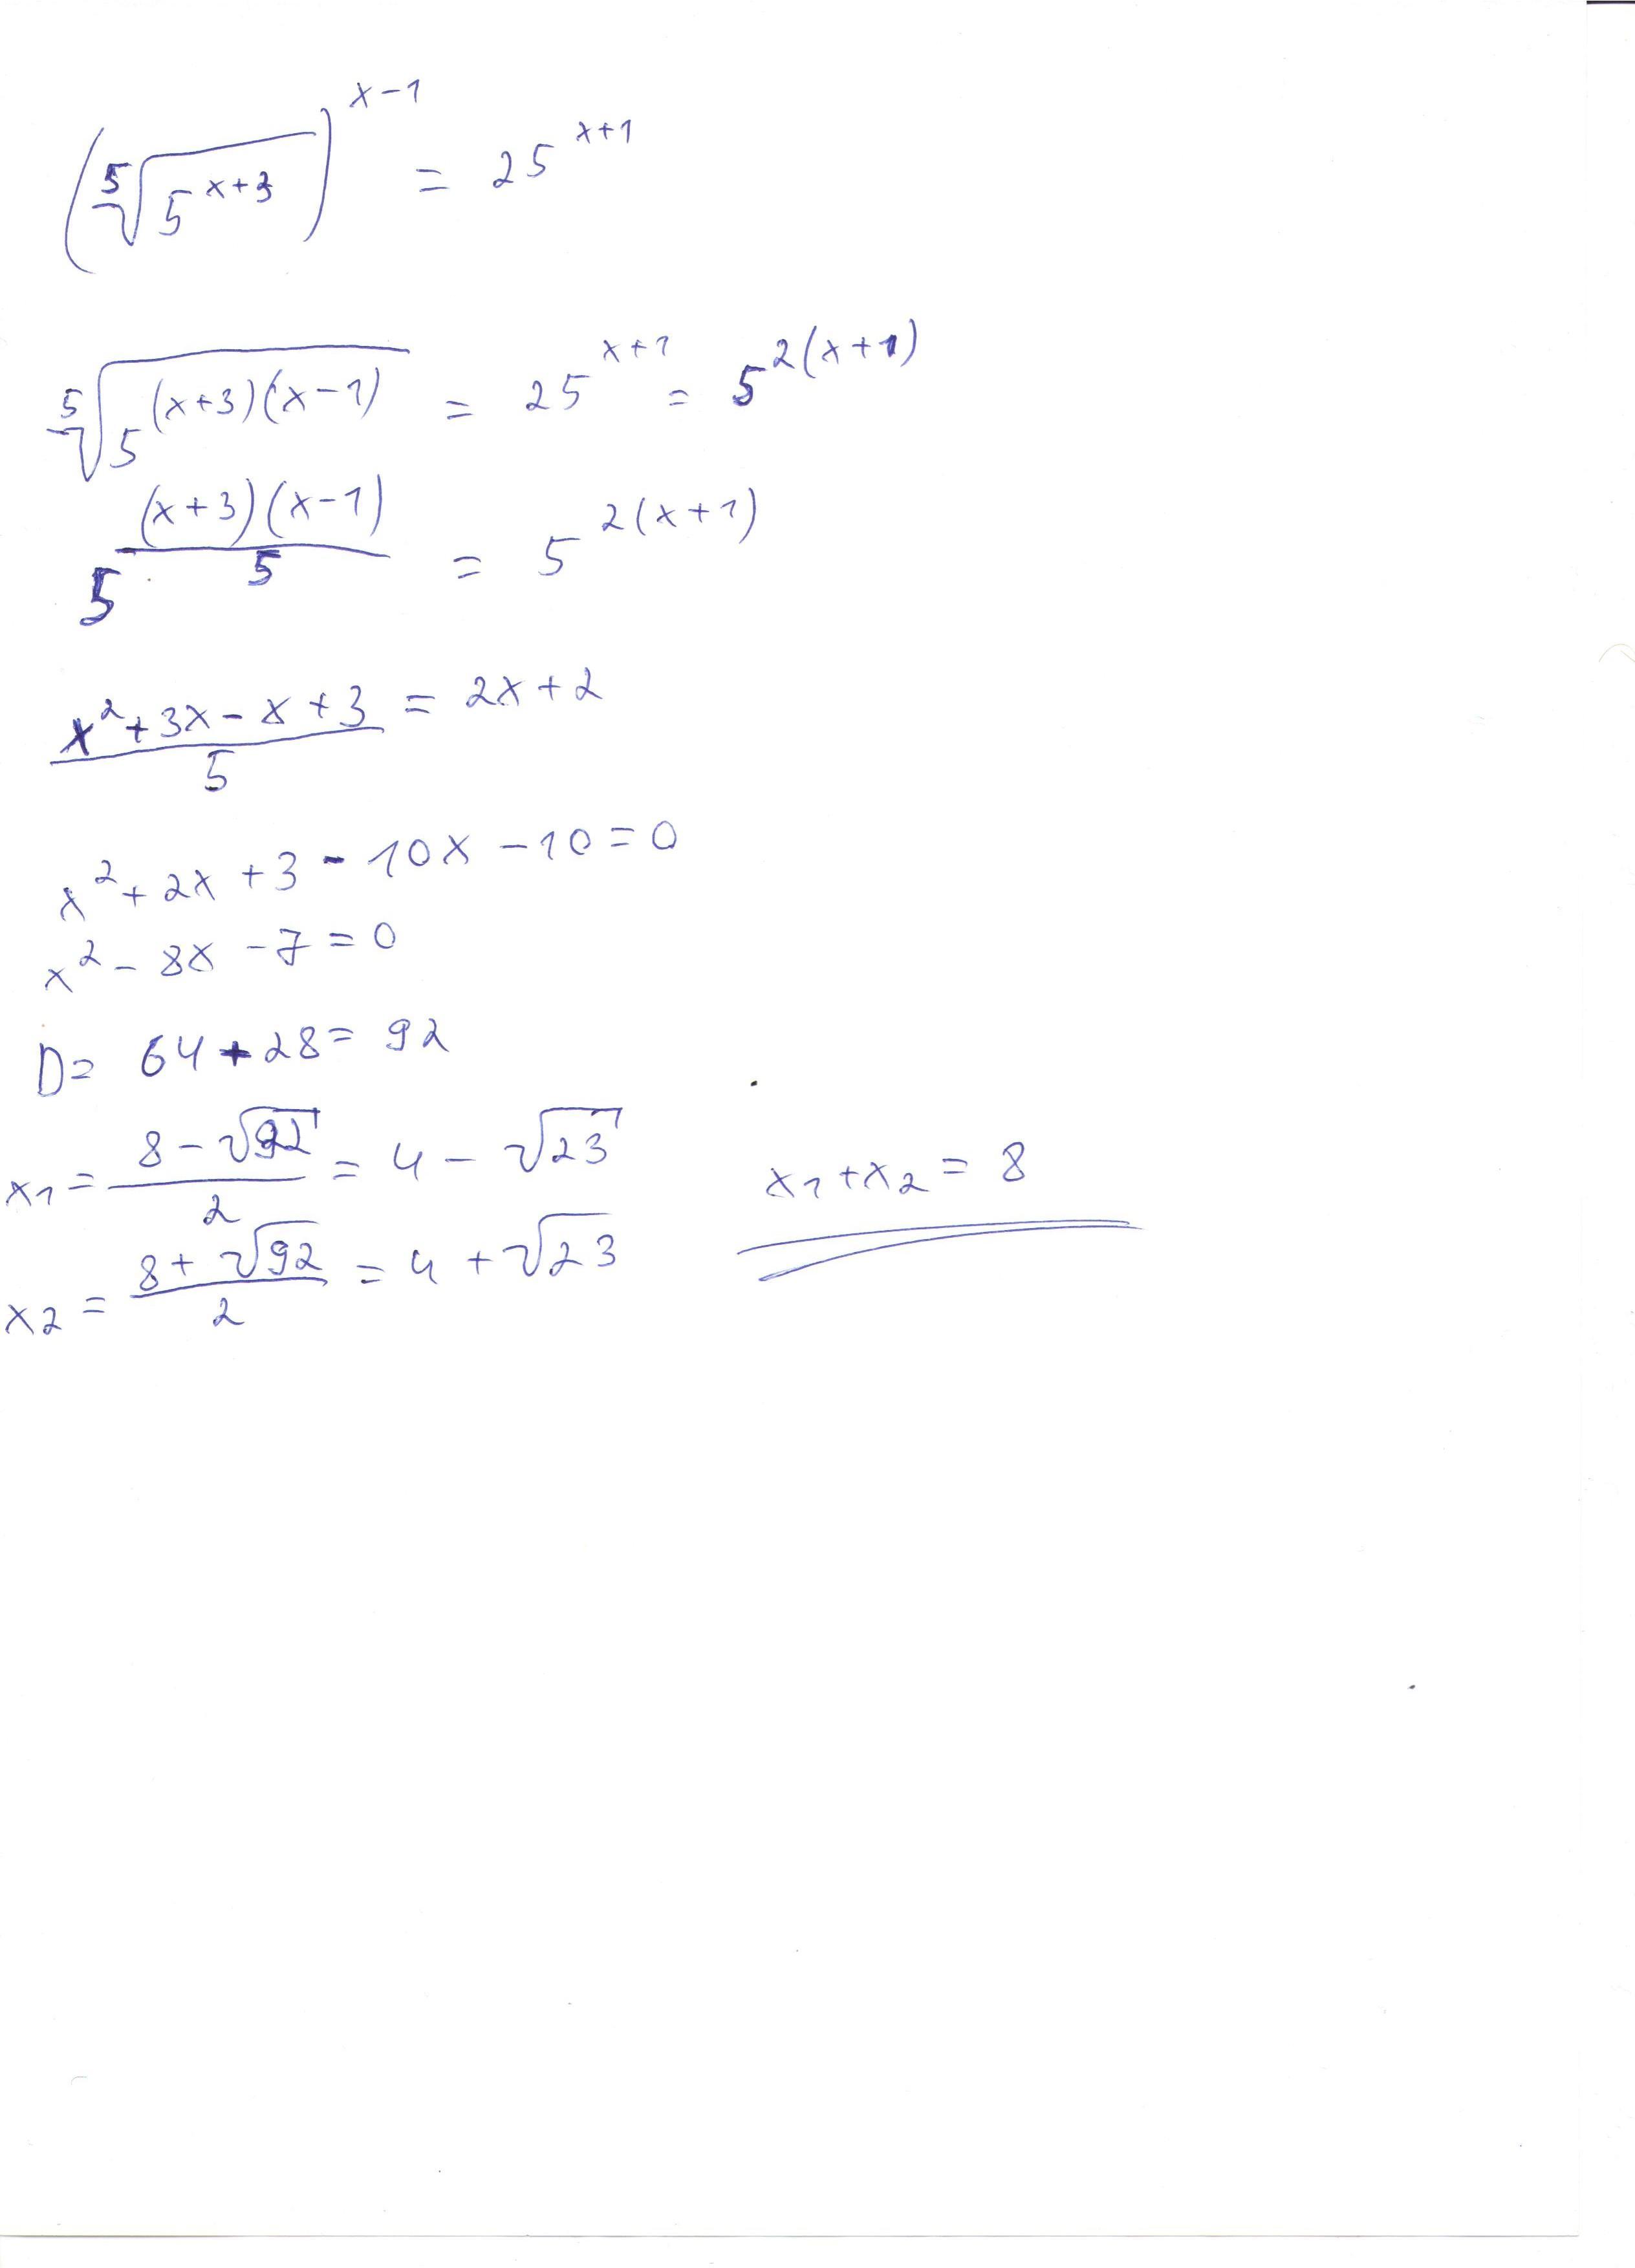 (⁵√(5^(x+3)))^(x-1) = 25^(x+1)
⁵√(5^((x+3)(x-1))) = 25^(x+1) = 5^(2(x+1))
5^((x+3)(x-1)/5) = 5^(2(x+1))
(x²+3x-x+3)/5 = 2x+2
x²+2x+3-10x-10=0
x²-8x-7=0
D= 64+28= 92
x1= (8-√92)/2 = 4-√23
x1+x2=8
x2= (8+√92)/2 = 4+√23